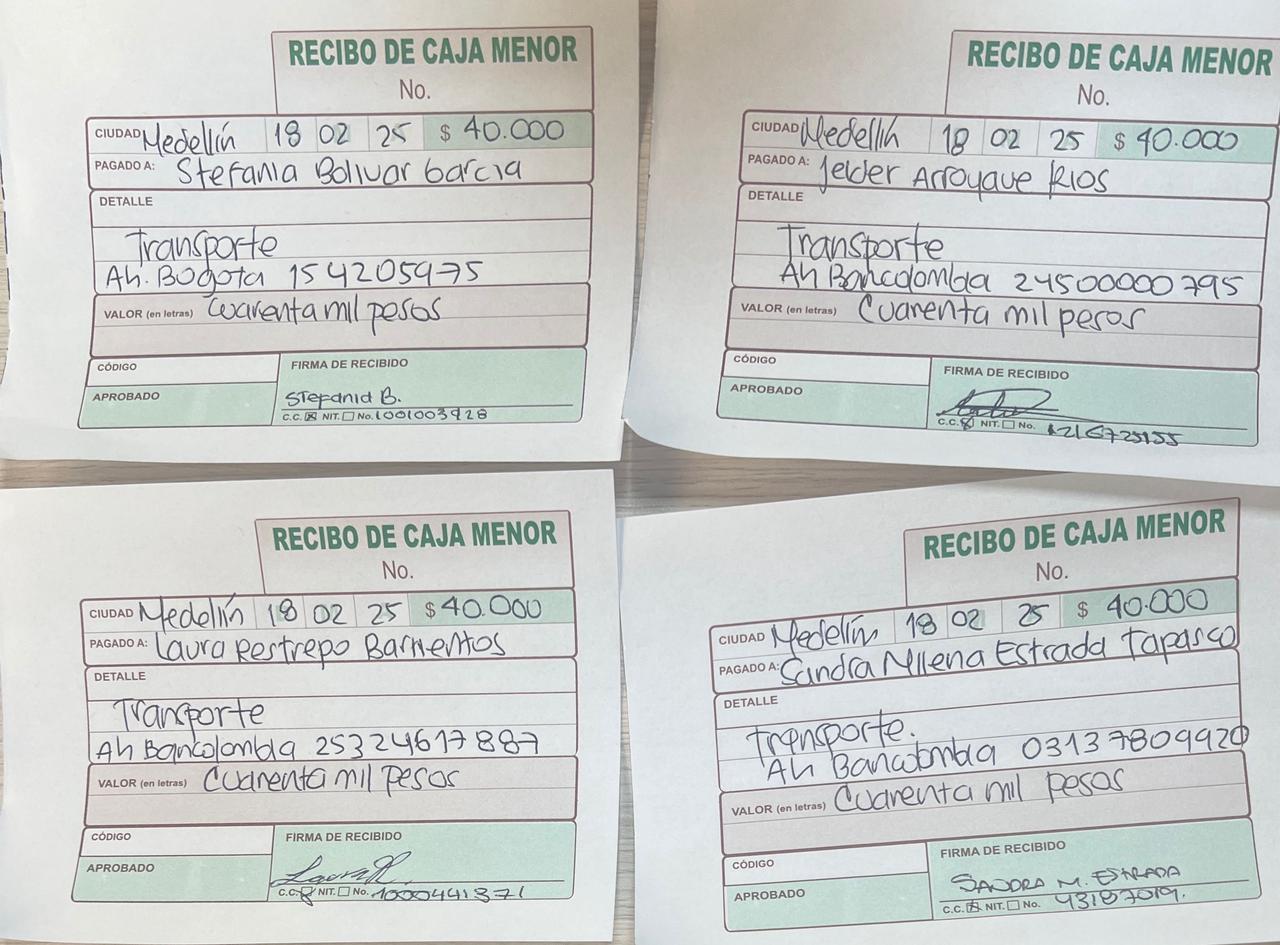 RECIBO DE CAJA MENOR
No.
CIUDAD Medellín 18 02 25 $ 40.000
PAGADO A: Stefania Bolivar Garcia
DETALLE
Transporte
Ah. Bogota 154205975
VALOR (en letras) Cuarenta mil pesos
CÓDIGO
FIRMA DE RECIBIDO
APROBADO
Stefania B.
C.C. NIT. No. 1001003928
RECIBO DE CAJA MENOR
No.
CIUDAD Medellín 18 02 25 $ 40.000
PAGADO A: Jeider Arroyave Rios
DETALLE
Transporte
Ah Bancolombia 24500000795
VALOR (en letras) Cuarenta mil pesos
CÓDIGO
FIRMA DE RECIBIDO
APROBADO
C.C. NIT. No. 1216725155
RECIBO DE CAJA MENOR
No.
CIUDAD Medellín 18 02 25 $ 40.000
PAGADO A: Laura Restrepo Barrientos
DETALLE
Transporte
Ah Bancolombia 25324617887
VALOR (en letras) Cuarenta mil pesos
CÓDIGO
FIRMA DE RECIBIDO
APROBADO
Laura R
C.C. NIT. No. 1000441371
RECIBO DE CAJA MENOR
No.
CIUDAD Medellín 18 02 25 $ 40.000
PAGADO A: Sandra Milena Estrada Tapasco
DETALLE
Transporte.
Ah Bancolombia 03137809920
VALOR (en letras) Cuarenta mil pesos
CÓDIGO
FIRMA DE RECIBIDO
APROBADO
SANDRA M. ESTRADA
C.C. NIT. No. 43187019.